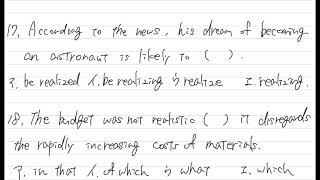 17. According to the news, his dream of becoming
an astronaut is likely to ( ).
ア. be realized イ. be realizing ウ realize エ. realizing.
18. The budget was not realistic ( ) it disregards
the rapidly increasing costs of materials.
ア. in that イ. of which ウ what エ. which